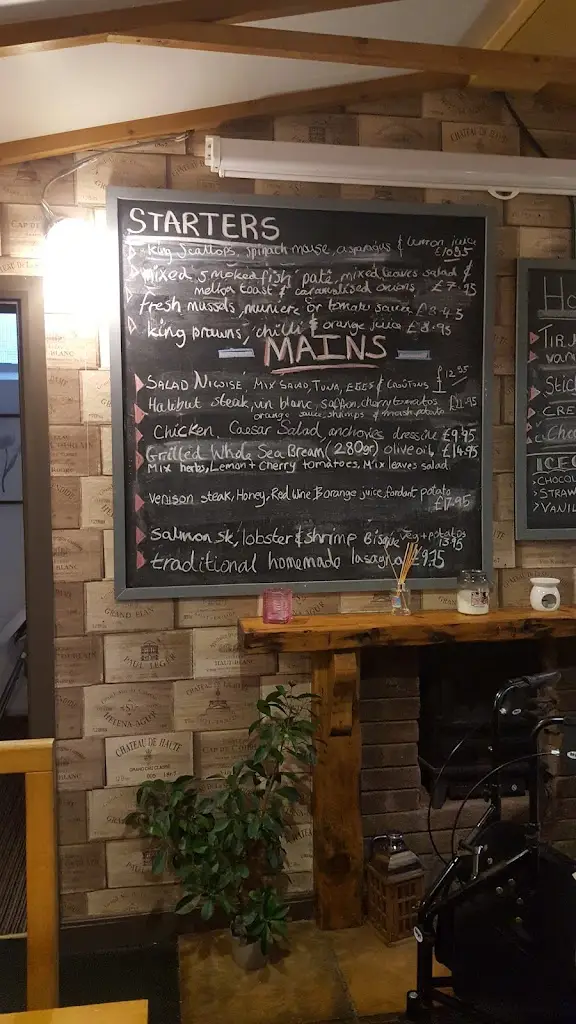 STARTERS
King Scallops, spinach maise, asparagus & lemon juice
£10.95
mixed smoked fish pate, mixed leaves salad &
melba toast & caramelised onions £7.95
fresh mussols, muniere or tomato sauce £8.45
king prawns, chilli & orange juice £8.95
MAINS
SALAD NIÇOISE, MIX SALAD, TUNA, EGGS & CROUTONS £12.95
Halibut steak, vin blanc, saffron, cherry tomatos
orange sauce, shrimps & mash potato
Chicken, Caesar Salad, anchovies dressing £9.95
Grilled Whole Sea Bream (280gr) olive oil, £14.95
Mix herbs, Lemon + Cherry tomatoes, Mix leaves salad
venison steak, Honey, Red wine & orange juice, fondant potato
£17.95
salmon sk, lobster & shrimp Bisque veg + potatos
13.95
traditional homemade lasagna £9.75
TIR
Stic
CRE
ICEC
CHOCO
STRAW
VANIL
CHATEAU DE HAUTE
GRAND CRU CLASSÉ
PAUL LEGER
HELENA